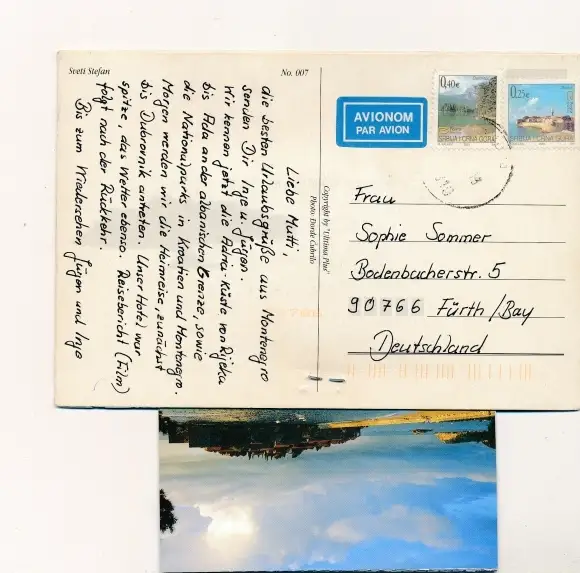 Sveti Stefan
No. 007
Liebe Mutti,
die besten Urlaubsgrüße aus Montenegro
senden Dir Inge u. Jürgen.
Wir kennen jetzt die Adria-Küste von Rijeka
bis Ada an der albanischen Grenze, sowie
die Nationalparks in Kroatien und Montenegro.
Morgen werden wir die Heimreise, zunächst
bis Dubrovnik antreten. Unser Hotel war
spitze, das Wetter ebenso. Reisebericht (Film)
folgt nach der Rückkehr.
Bis zum Wiedersehen Jürgen und Inge
Copyright by "Ultima Plus"
Photo: Dorde Čubrilo
AVIONOM
PAR AVION
0,40€
SRBIJA I CRNA GORA
0,25€
SRBIJA I CRNA GORA
Frau
Sophie Sommer
Bodenbacherstr. 5
90766 Fürth /Bay
Deutschland